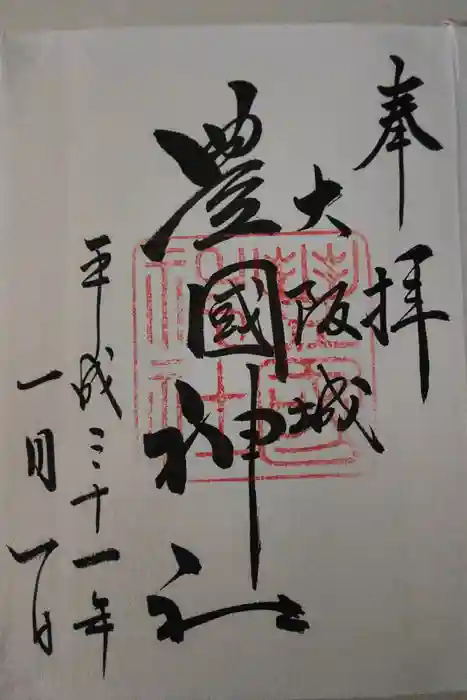 奉拝
大阪城
豊國神社
平成三十一年
一月一日